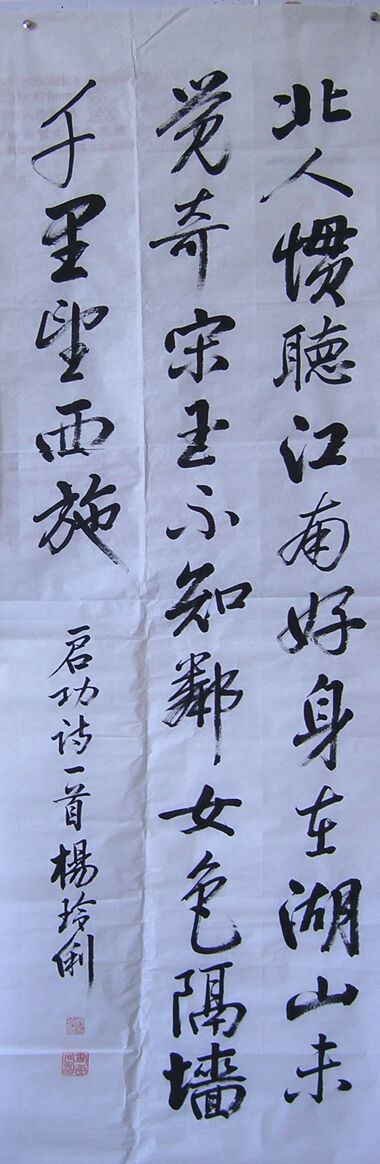 北人惯聴江南好身在湖山未
觉奇宋玉不知鄰女色隔墙
千里望西施
启功诗一首楊玲俐